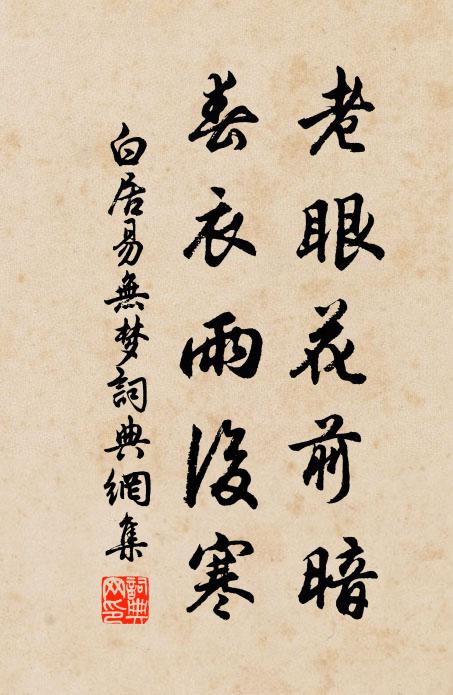 老眼花前暗
春衣雨後寒
白居易無梦詞典網集
詞典網印